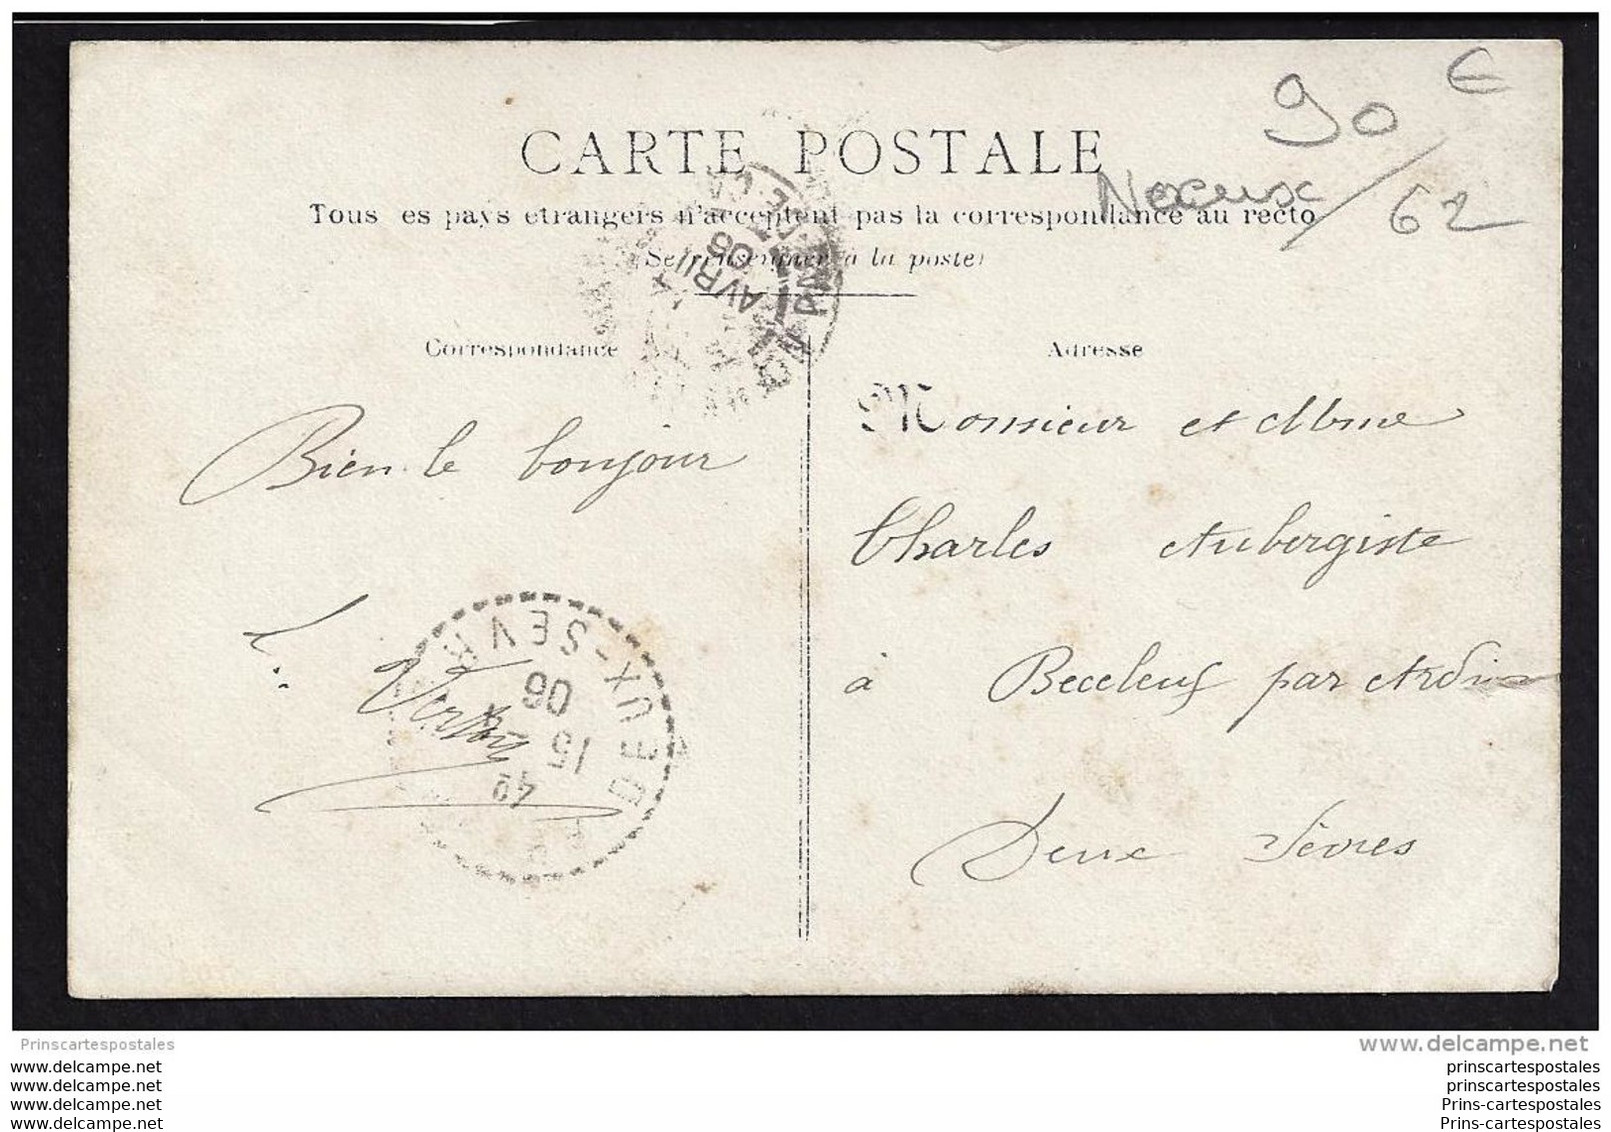 90 €
CARTE POSTALE
Nœux / 62
Tous es pays etrangers n'acceptent pas la correspondance au recto
(Se renseigner à la poste)
AVRIL
06
Correspondance
Adresse
Bien le bonjour
L. 
Monsieur et Mme
Charles Aubergiste
à Beceleuf par Ardin
Deux Sèvres
DEUX-SEV
06
15
42
Prinscartespostales
www.delcampe.net
www.delcampe.net
www.delcampe.net
www.delcampe.net
www.delcampe.net
prinscartespostales
prinscartespostales
Prins-cartespostales
Prins-cartespostales